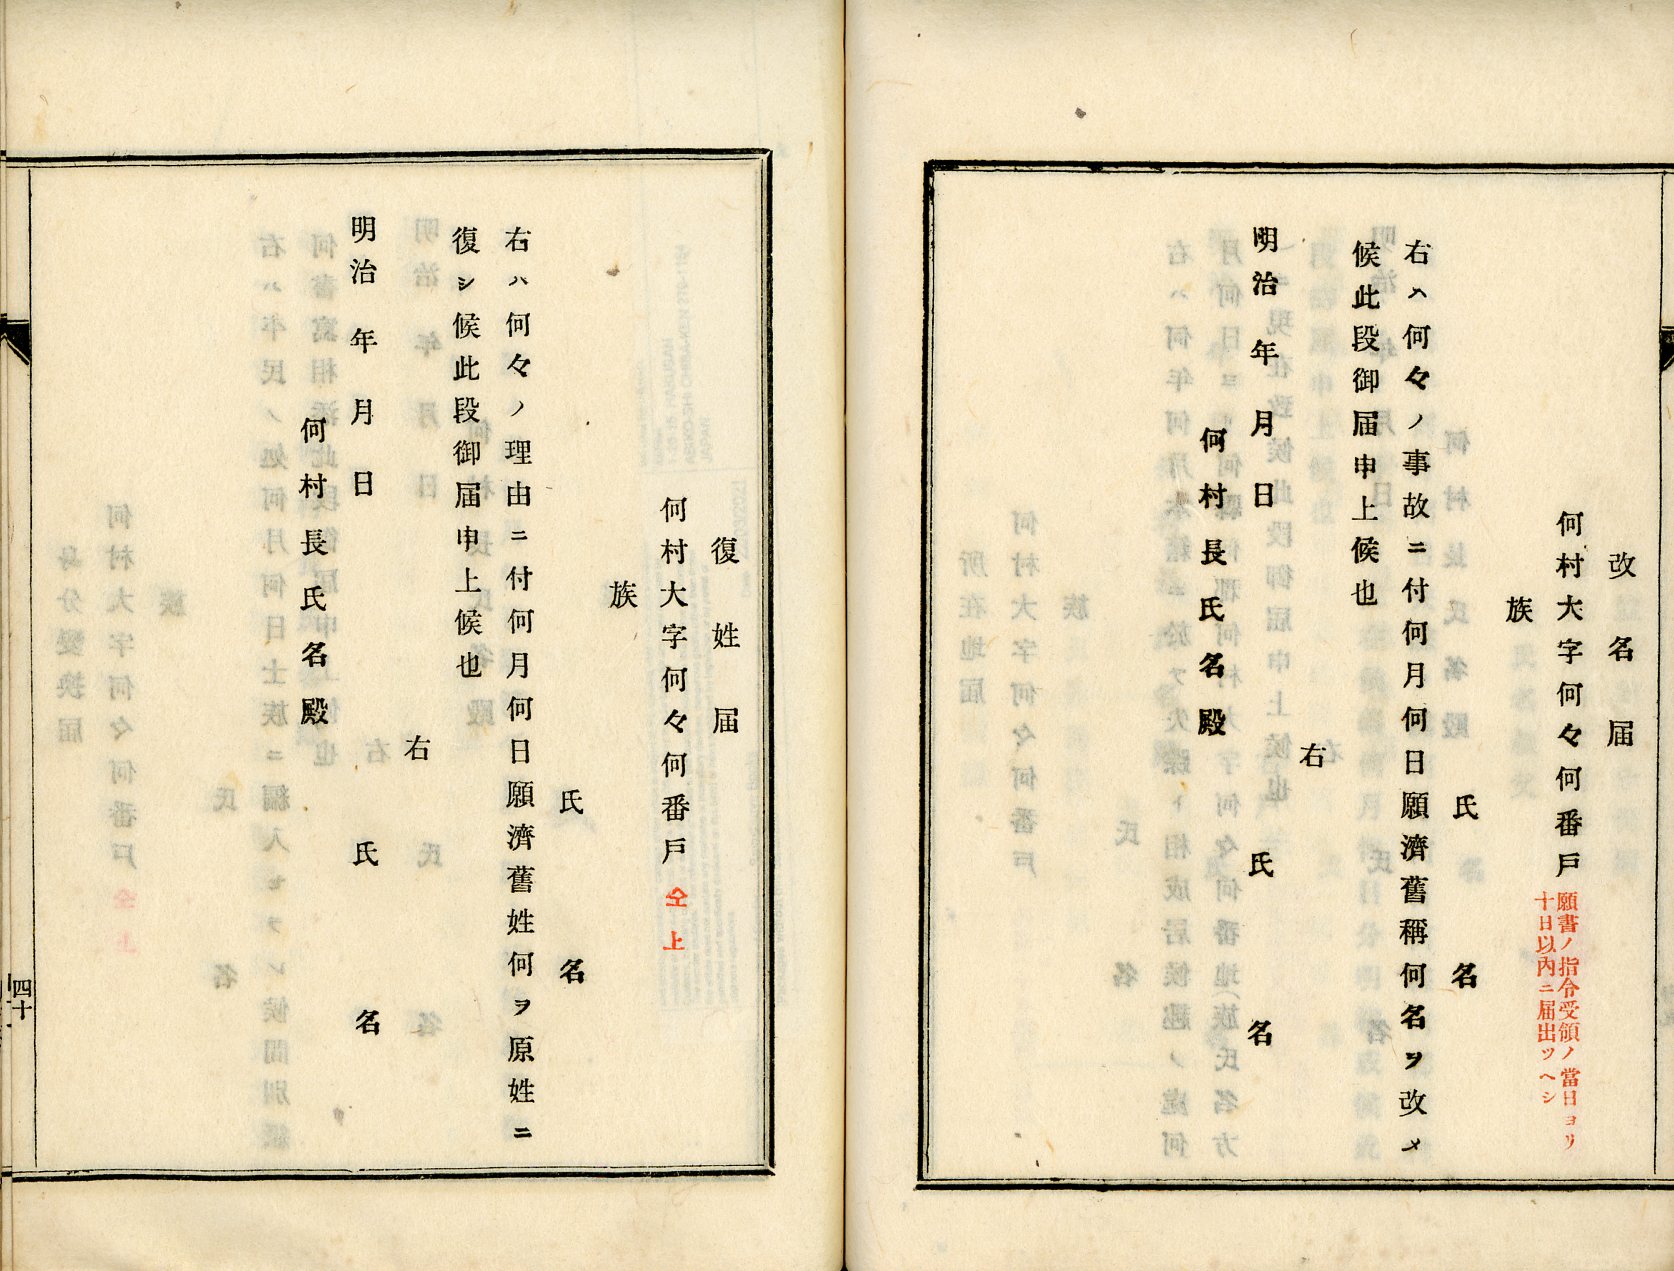 改名届
何村大字何々何番戸
願書ノ指令受領ノ當日ヨリ
十日以內ニ届出ツヘシ
族
氏名
右ハ何々ノ事故ニ付何月何日願濟舊稱何名ヲ改メ
候此段御届申上候也
右
氏名
明治年月日
何村長氏名殿
復姓届
何村大字何々何番戸
仝上
族
氏名
右ハ何々ノ理由ニ付何月何日願濟舊姓何ヲ原姓ニ
復シ候此段御届申上候也
右
氏名
明治年月日
何村長氏名殿
四十